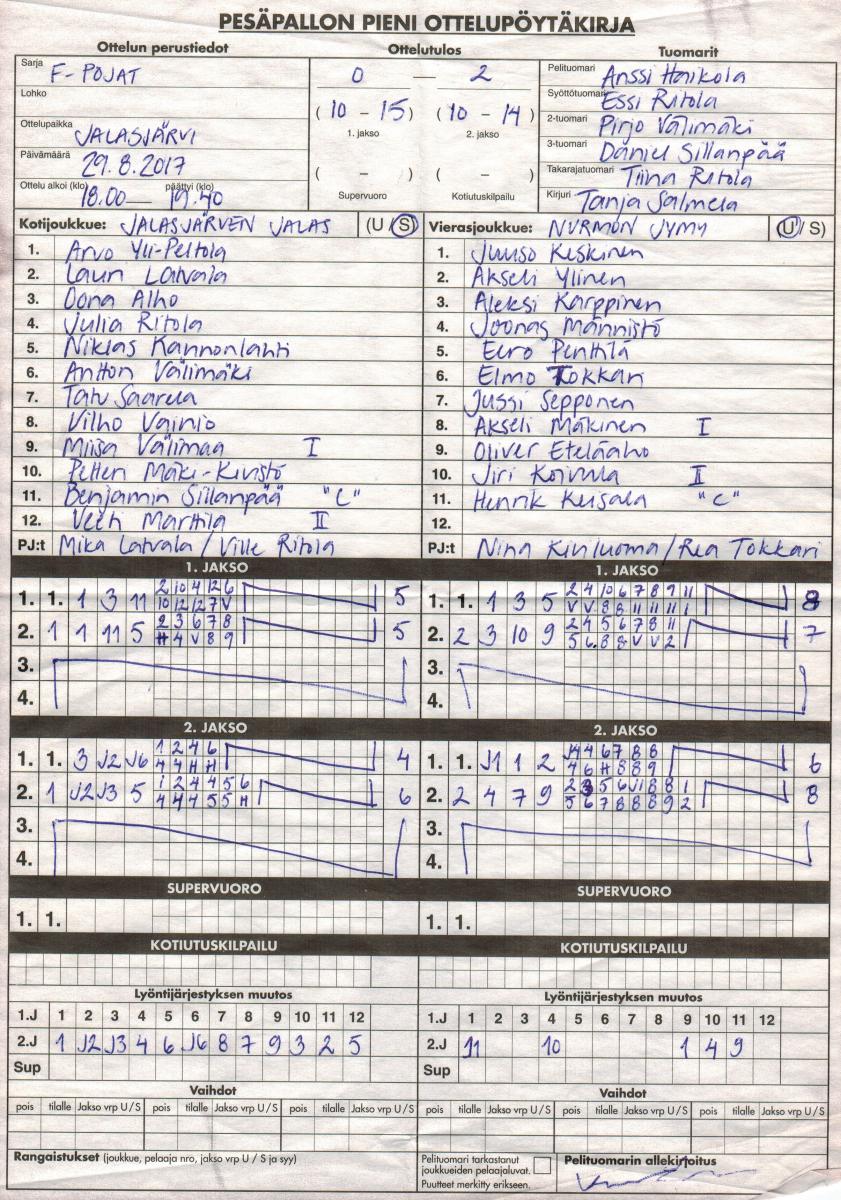 PESÄPALLON PIENI OTTELUPÖYTÄKIRJA
Ottelun perustiedot
Ottelutulos
Tuomarit
Sarja F-POJAT
Lohko
Ottelupaikka JALASJÄRVI
Päivämäärä 29.8.2017
Ottelu alkoi (klo) 18.00 — päättyi (klo) 19.40
0 — 2
(10 – 15) (10 – 14)
1. jakso 2. jakso
( – ) ( – )
Supervuoro Kotiutuskilpailu
Pelituomari Anssi Haikola
Syöttötuomari Essi Ritola
2-tuomari Pirjo Välimäki
3-tuomari Daniel Sillanpää
Takarajatuomari Tiina Ritola
Kirjuri Tanja Salmela
Kotijoukkue: JALASJÄRVEN JALAS (U/S)
1. Arvo Yli-Peltola
2. Lauri Latvala
3. Oona Alho
4. Julia Ritola
5. Niklas Kannonlahti
6. Antton Välimäki
7. Tatu Saarela
8. Vilho Vainio
9. Miisa Välimaa I
10. Petteri Mäki-Kivistö
11. Benjamin Sillanpää "C"
12. Veeti Marttila II
PJ:t Mika Latvala / Ville Ritola
Vierasjoukkue: NURMON JYMY (U/S)
1. Juuso Keskinen
2. Akseli Ylinen
3. Aleksi Karppinen
4. Joonas Männistö
5. Eero Penttilä
6. Elmo Tokkari
7. Jussi Sepponen
8. Akseli Mäkinen I
9. Oliver Eteläaho
10. Jiri Koivula II
11. Henrik Keisala "C"
12.
PJ:t Nina Kiviluoma / Rea Tokkari
1. JAKSO
1. 1. 1 3 11 2 10 4 12 6 5
10 12 12 7 V
2. 1 1 11 5 2 3 6 7 8 5
H 4 V 8 9
3.
4.
1. JAKSO
1. 1. 1 3 5 2 4 10 6 7 8 9 11 8
V V 8 8 11 11 11 1
2. 2 3 10 9 2 4 5 6 7 8 11 7
5 6 8 8 V V 2
3.
4.
2. JAKSO
1. 1. 3 J2 J6 1 2 4 6 4
4 4 H H
2. 1 J2 J3 5 1 2 4 4 5 6 6
4 4 4 5 5 H
3.
4.
2. JAKSO
1. 1. J1 1 2 J4 4 6 7 8 8 6
4 6 H 8 8 9
2. 2 4 7 9 2 3 5 6 J1 8 8 1 8
5 6 7 8 8 8 9 2
3.
4.
SUPERVUORO
1. 1.
SUPERVUORO
1. 1.
KOTIUTUSKILPAILU
KOTIUTUSKILPAILU
Lyöntijärjestyksen muutos
1.J 1 2 3 4 5 6 7 8 9 10 11 12
2.J 1 J2 J3 4 6 J6 8 7 9 3 2 5
Sup
Lyöntijärjestyksen muutos
1.J 1 2 3 4 5 6 7 8 9 10 11 12
2.J 11 10 1 4 9
Sup
Vaihdot
pois tilalle Jakso vrp U/S pois tilalle Jakso vrp U/S pois tilalle Jakso vrp U/S
Vaihdot
pois tilalle Jakso vrp U/S pois tilalle Jakso vrp U/S pois tilalle Jakso vrp U/S
Rangaistukset (joukkue, pelaaja nro, jakso vrp U / S ja syy)
Pelituomari tarkastanut
joukkueiden pelaajaluvat.
Puutteet merkitty erikseen.
Pelituomarin allekirjoitus